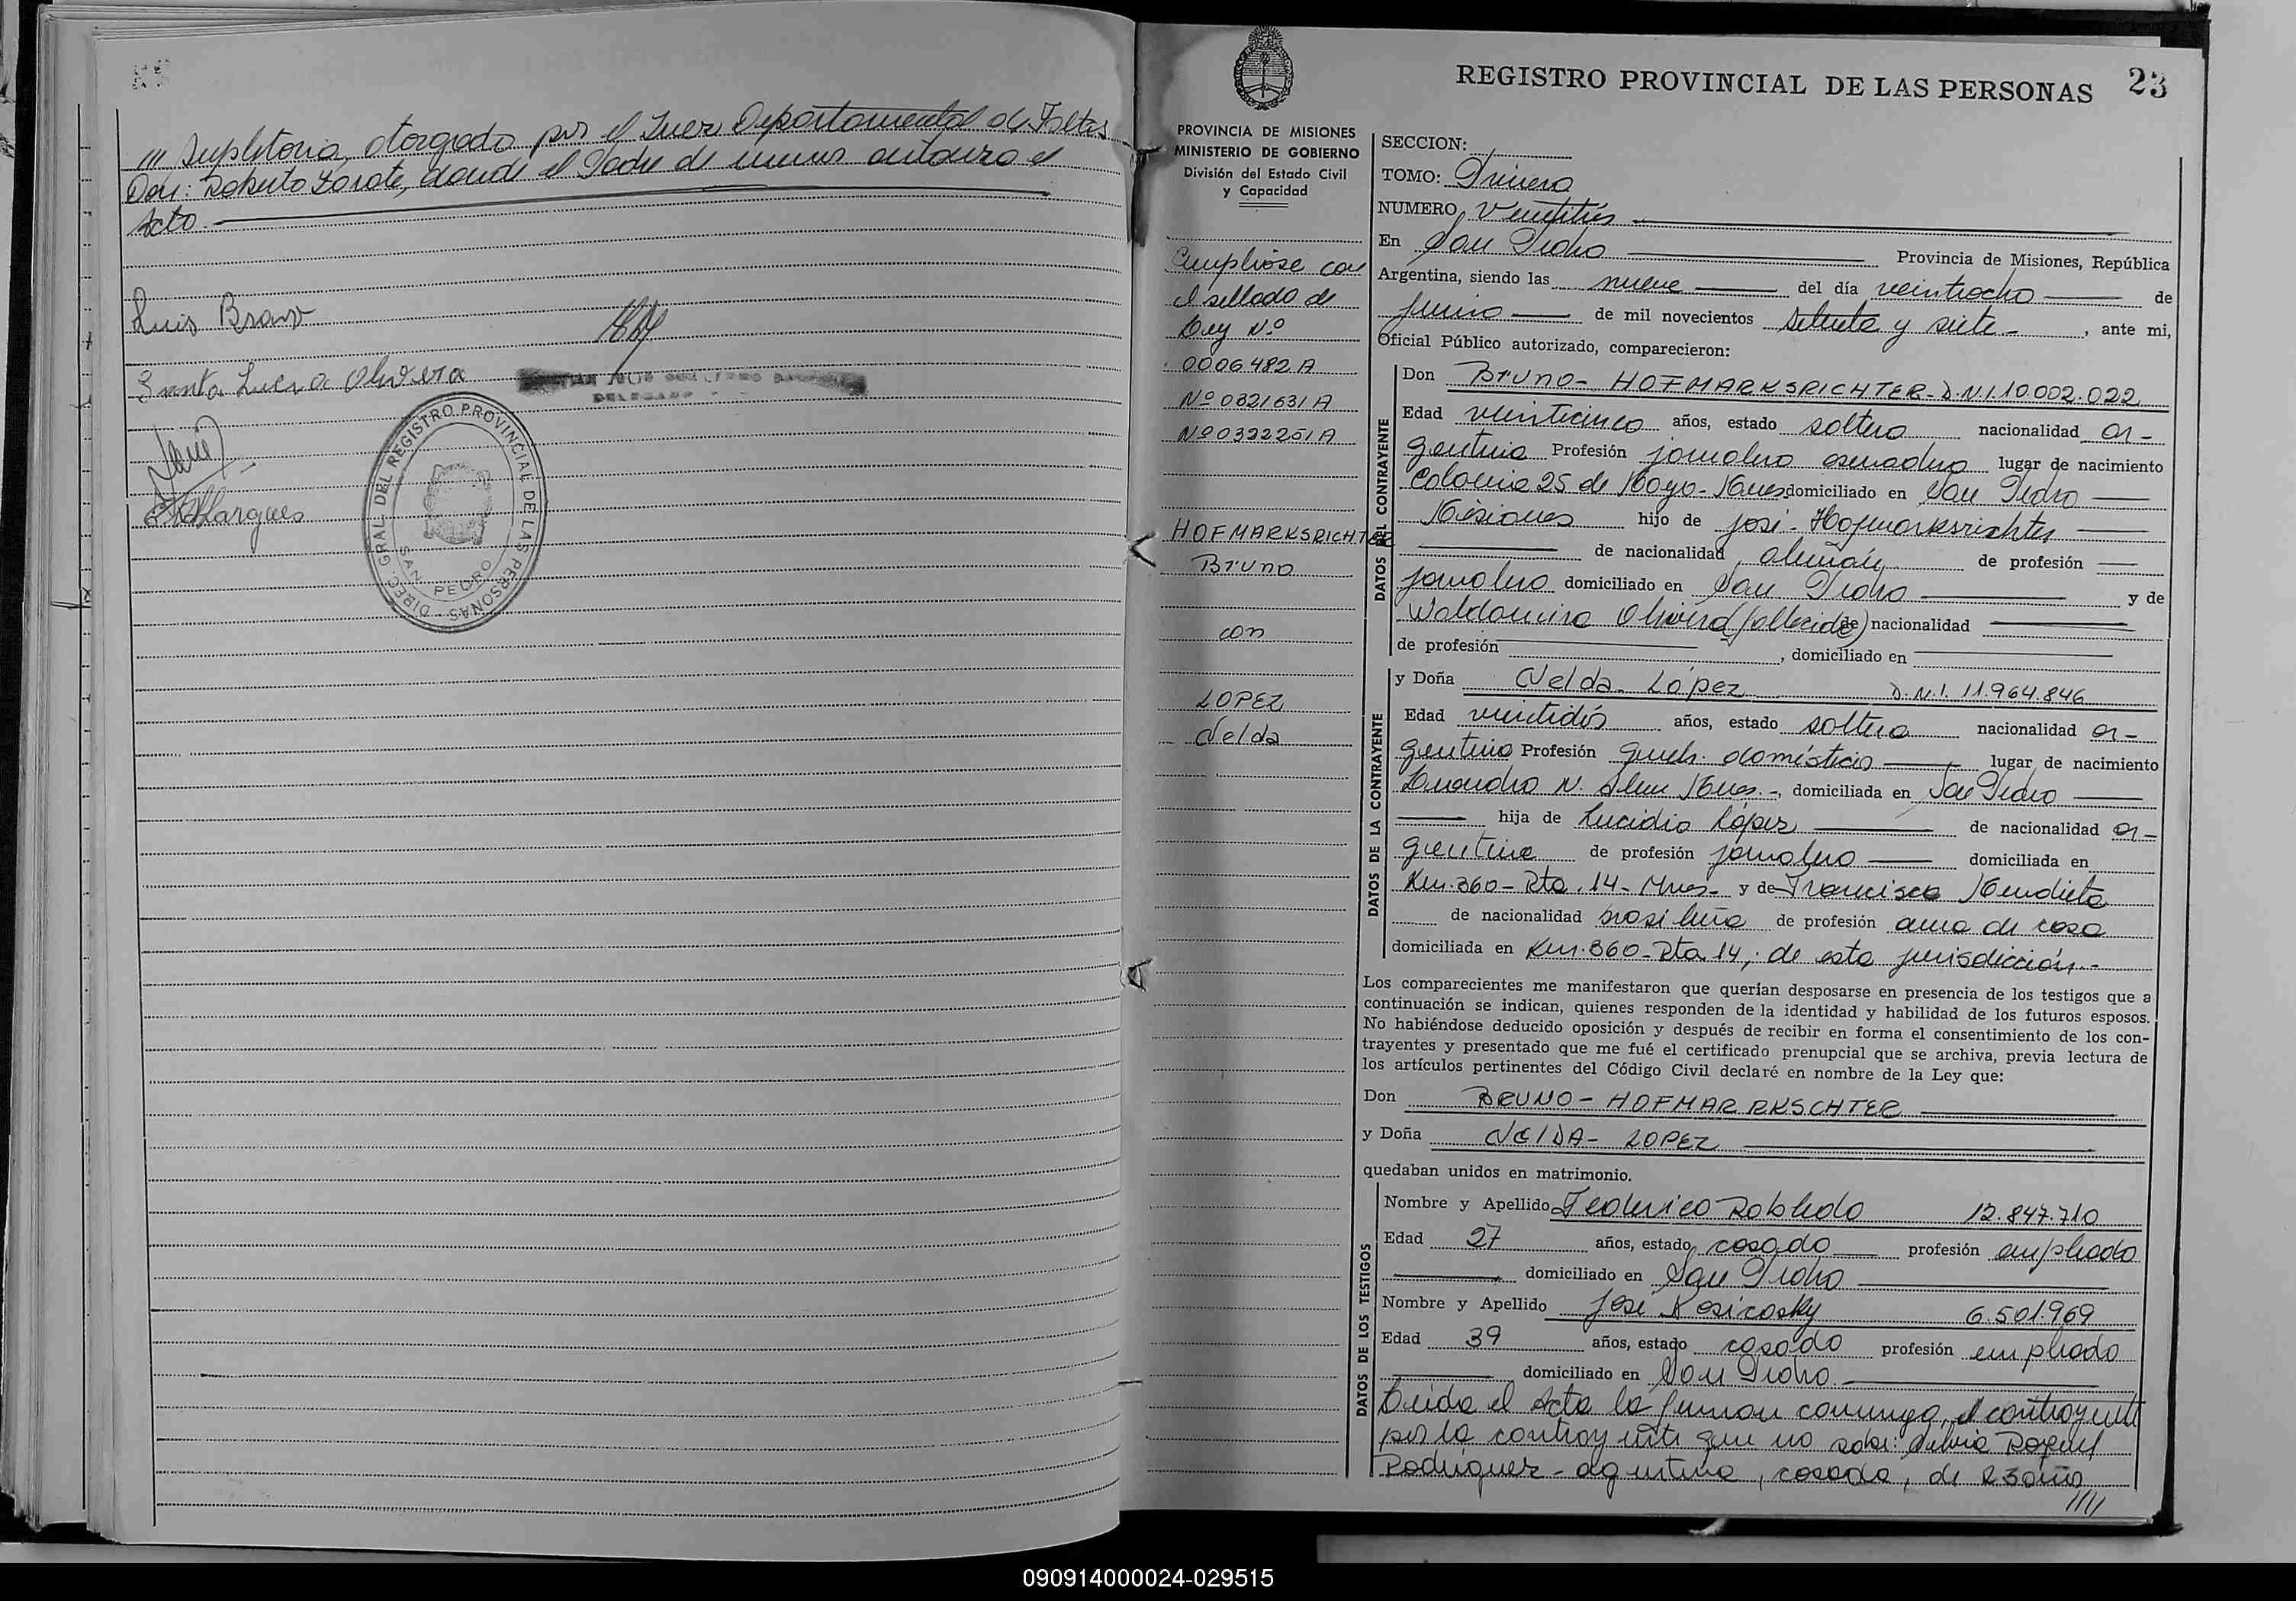 /// Supletoria, otorgada por el Juez Departamental de Faltas
Don: Roberto Zarate, donde el Padre de menor autoriza el
Acto.
Luis Bravo
Santa Lucia Olivera
Marques
DIREC. GRAL. DEL REGISTRO PROVINCIAL DE LAS PERSONAS
SAN PEDRO
REGISTRO PROVINCIAL DE LAS PERSONAS 23
PROVINCIA DE MISIONES
MINISTERIO DE GOBIERNO
División del Estado Civil
y Capacidad
Cumplióse con
el sellado de
Ley Nº
0006482A
Nº 0321631A
Nº 0322251A
HOFMARKSRICHTER
Bruno
con
LOPEZ
Nelda
SECCION:
TOMO: Primero
NUMERO Veintitrés
En San Pedro Provincia de Misiones, República
Argentina, siendo las nueve del día veintiocho de
junio de mil novecientos setenta y siete, ante mi,
Oficial Público autorizado, comparecieron:
DATOS DEL CONTRAYENTE
Don Bruno - HOFMARKSRICHTER - D.N.I. 10.002.022
Edad veinticinco años, estado soltero nacionalidad ar-
gentina Profesión jornalero lugar de nacimiento
Colonia 25 de Mayo - Mnes domiciliado en San Pedro
Misiones hijo de José - Hofmarksrichter
de nacionalidad alemán de profesión
jornalero domiciliado en San Pedro y de
Waldomira Olivera (fallecida) de nacionalidad
de profesión , domiciliado en
DATOS DE LA CONTRAYENTE
y Doña Nelda - López D.N.I. 11.964.846
Edad veintidós años, estado soltera nacionalidad ar-
gentina Profesión queh. domésticos lugar de nacimiento
Leandro N. Alem Mnes.-, domiciliada en San Pedro
hija de Lucidio López de nacionalidad ar-
gentina de profesión jornalero domiciliada en
Km. 360 - Rta. 14 - Mnes - y de Francisca Mendieta
de nacionalidad brasileña de profesión ama de casa
domiciliada en Km. 360 - Rta 14, de esta jurisdicción.-
Los comparecientes me manifestaron que querían desposarse en presencia de los testigos que a
continuación se indican, quienes responden de la identidad y habilidad de los futuros esposos.
No habiéndose deducido oposición y después de recibir en forma el consentimiento de los con-
trayentes y presentado que me fué el certificado prenupcial que se archiva, previa lectura de
los artículos pertinentes del Código Civil declaré en nombre de la Ley que:
Don BRUNO - HOFMARRKSCHTER
y Doña NELDA - LOPEZ
quedaban unidos en matrimonio.
DATOS DE LOS TESTIGOS
Nombre y Apellido Federico Robledo 12.847.710
Edad 27 años, estado casado profesión empleado
domiciliado en San Pedro
Nombre y Apellido José Kosicosky 6.501.969
Edad 39 años, estado casado profesión empleado
domiciliado en San Pedro.
Leída el Acta la firman conmigo, el contrayente
por la contrayente que no sabe: Silvia Raquel
Rodríguez - argentina, casada, de 23 años
////
090914000024-029515